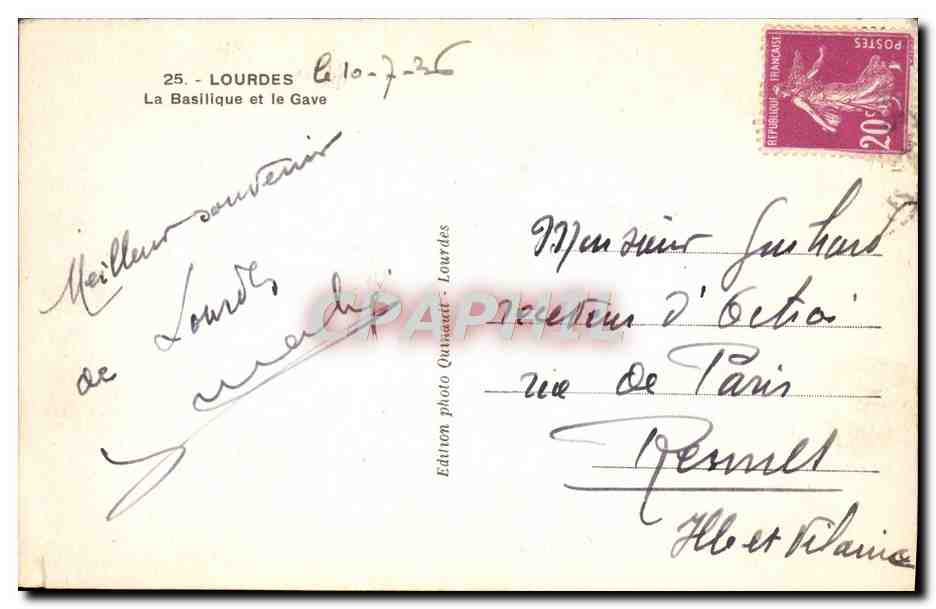 25. - LOURDES
La Basilique et le Gave
le 10-7-36
Meilleur souvenir
de Lourdes
Edition photo Quinault - Lourdes
REPUBLIQUE FRANÇAISE
POSTES
20c
CPAPHIL
Monsieur
receveur d'Octroi
rue de Paris
Rennes
Ille et Vilaine